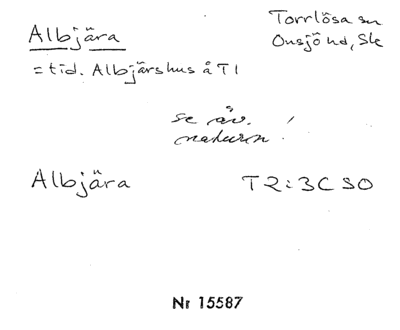 Albjära
Torrlösa sn
Onsjö hd, Sk
= tid. Albjärshus å T1
se äv.
naturn !
Albjära
T2:3C SO
Nr 15587